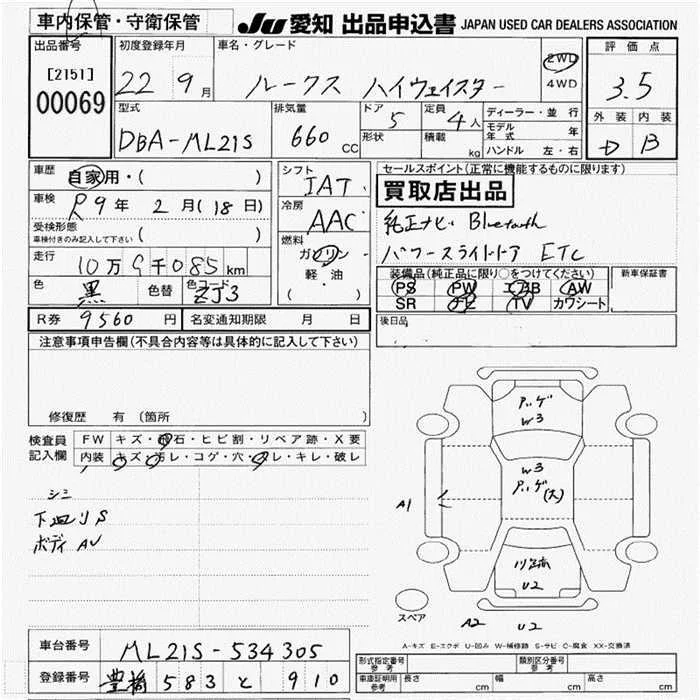 車内保管・守衛保管
JU 愛知 出品申込書 JAPAN USED CAR DEALERS ASSOCIATION
出品番号
[2151]
00069
初度登録年月
22 9月
車名・グレード
ルークス ハイウェイスター
2WD
4WD
評価点
3.5
外装 内装
D B
型式
DBA-ML21S
排気量
660 cc
ドア
5
形状
定員
4人
積載
kg
ディーラー・並行
モデル年式 年
ハンドル 左・右
車歴
自家用・( )
車検
R9年 2月(18日)
受検形態
車検付きのみ記入して下さい ( )
走行
10万9千085km
色
黒
色替
色コード
ZJ3
シフト
IAT
冷房
AAC
燃料
ガソリン
軽・油
( ・ )
セールスポイント(正常に機能するものに限ります)
買取店出品
純正ナビ Bluetooth
パワースライドドア ETC
装備品(純正品に限り○をつけてください)
PS PW エアB AW
SR ナビ TV カワシート
新車保証書
後日品
R券 9560円
名変通知期限 月 日
注意事項申告欄(不具合内容等は具体的に記入して下さい)
修復歴 有(箇所
検査員記入欄
FW キズ・飛石・ヒビ割・リペア跡・X要
内装 キズ・汚レ・コゲ・穴・スレ・キレ・破レ
シミ
下廻りS
ボディAU
ハゲ
W3
W3
ハゲ(大)
A1
U2
スペア
A2 U2
A-キズ E-エクボ U-凹み W-補修跡 S-サビ C-腐食 XX-交換済
車台番号 ML21S-534305
登録番号 豊橋 583 と 910
形式指定番号 参考
類別区分番号 参考
車庫証明用 参考
長さ cm
幅 cm
高さ cm